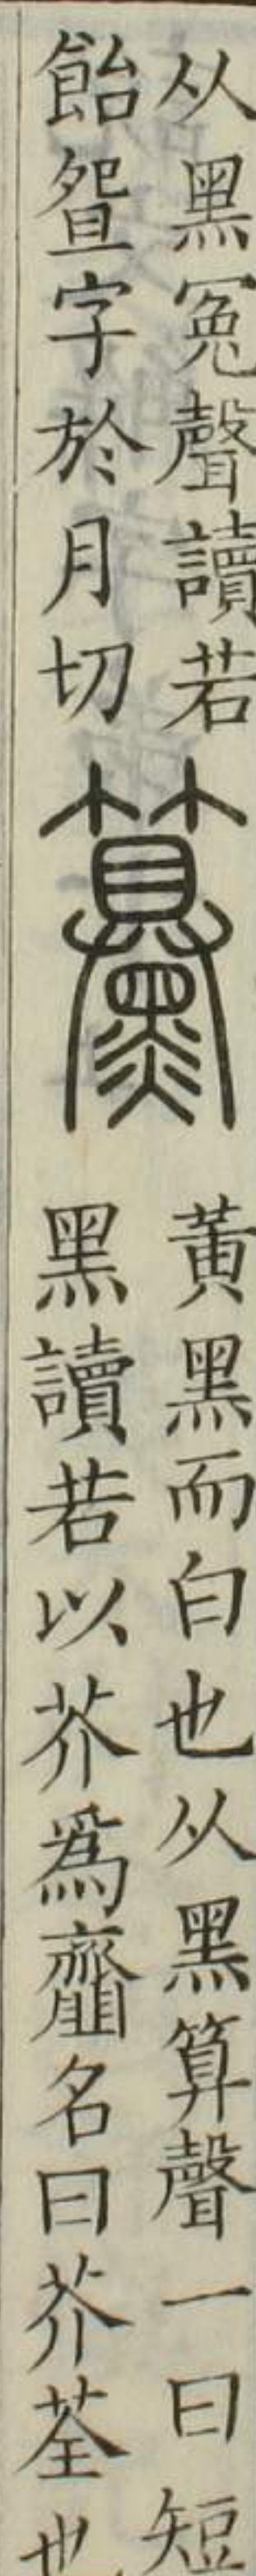 从黑冤聲讀若
飴字於月切
黃黑而白也从黑算聲一曰短
黑讀若以芥爲齏名曰芥荃也